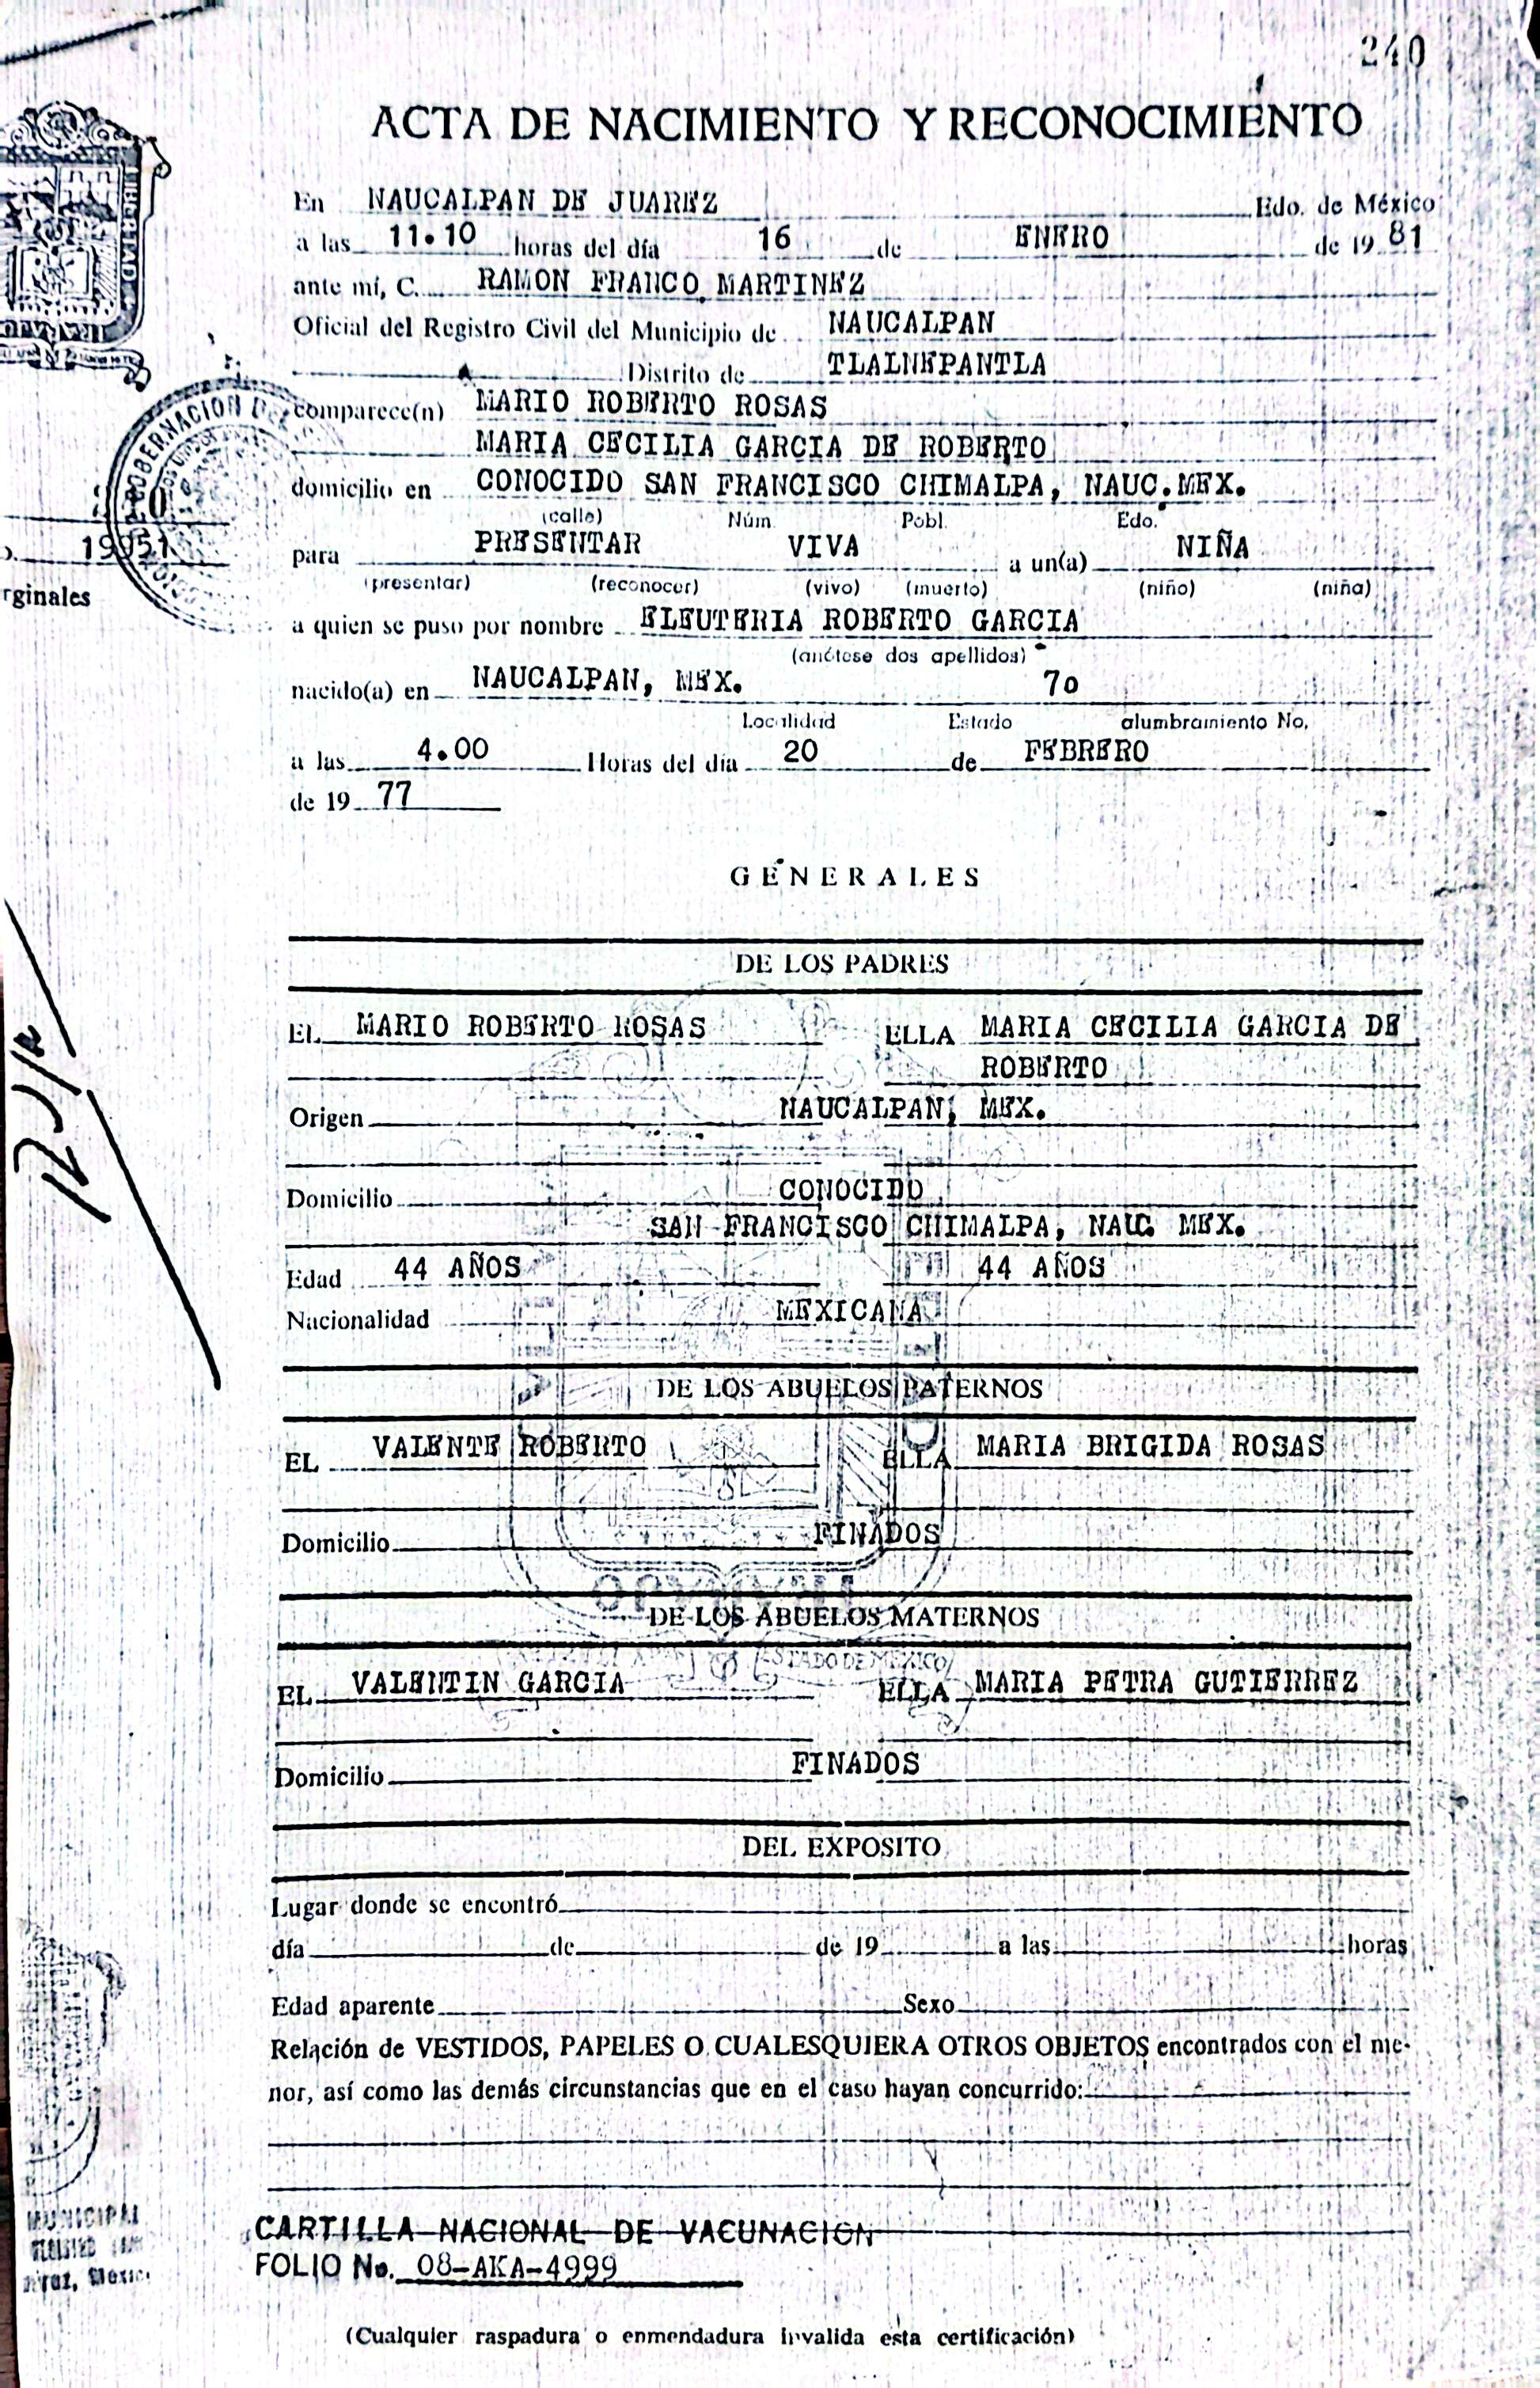 240
ACTA DE NACIMIENTO Y RECONOCIMIENTO
En NAUCALPAN DE JUAREZ Edo. de México
a las 11.10 horas del día 16 de ENERO de 19 81
ante mí, C. RAMON FRANCO MARTINEZ
Oficial del Registro Civil del Municipio de NAUCALPAN
Distrito de TLALNEPANTLA
comparece(n) MARIO ROBERTO ROSAS
MARIA CECILIA GARCIA DE ROBERTO
domicilio en CONOCIDO SAN FRANCISCO CHIMALPA, NAUC.MEX.
(calle) Núm. Pobl. Edo.
para PRESENTAR VIVA a un(a) NIÑA
(presentar) (reconocer) (vivo) (muerto) (niño) (niña)
rginales
a quien se puso por nombre ELEUTERIA ROBERTO GARCIA
(anótese dos apellidos)
nacido(a) en NAUCALPAN, MEX. 7o
Localidad Estado alumbramiento No.
a las 4.00 Horas del día 20 de FEBRERO
de 19 77
GENERALES
DE LOS PADRES
EL MARIO ROBERTO ROSAS ELLA MARIA CECILIA GARCIA DE
ROBERTO
Origen NAUCALPAN, MEX.
Domicilio CONOCIDO
SAN FRANCISCO CHIMALPA, NAUC. MEX.
Edad 44 AÑOS 44 AÑOS
Nacionalidad MEXICANA
DE LOS ABUELOS PATERNOS
EL VALENTE ROBERTO ELLA MARIA BRIGIDA ROSAS
Domicilio FINADOS
DE LOS ABUELOS MATERNOS
ESTADO DE MEXICO
EL VALENTIN GARCIA ELLA MARIA PETRA GUTIERREZ
Domicilio FINADOS
DEL EXPOSITO
Lugar donde se encontró
día de de 19 a las horas
Edad aparente Sexo
Relación de VESTIDOS, PAPELES O CUALESQUIERA OTROS OBJETOS encontrados con el me-
nor, así como las demás circunstancias que en el caso hayan concurrido:
MUNICIPAL
CARTILLA NACIONAL DE VACUNACION
FOLIO No. 08-AKA-4999
(Cualquier raspadura o enmendadura invalida esta certificación)